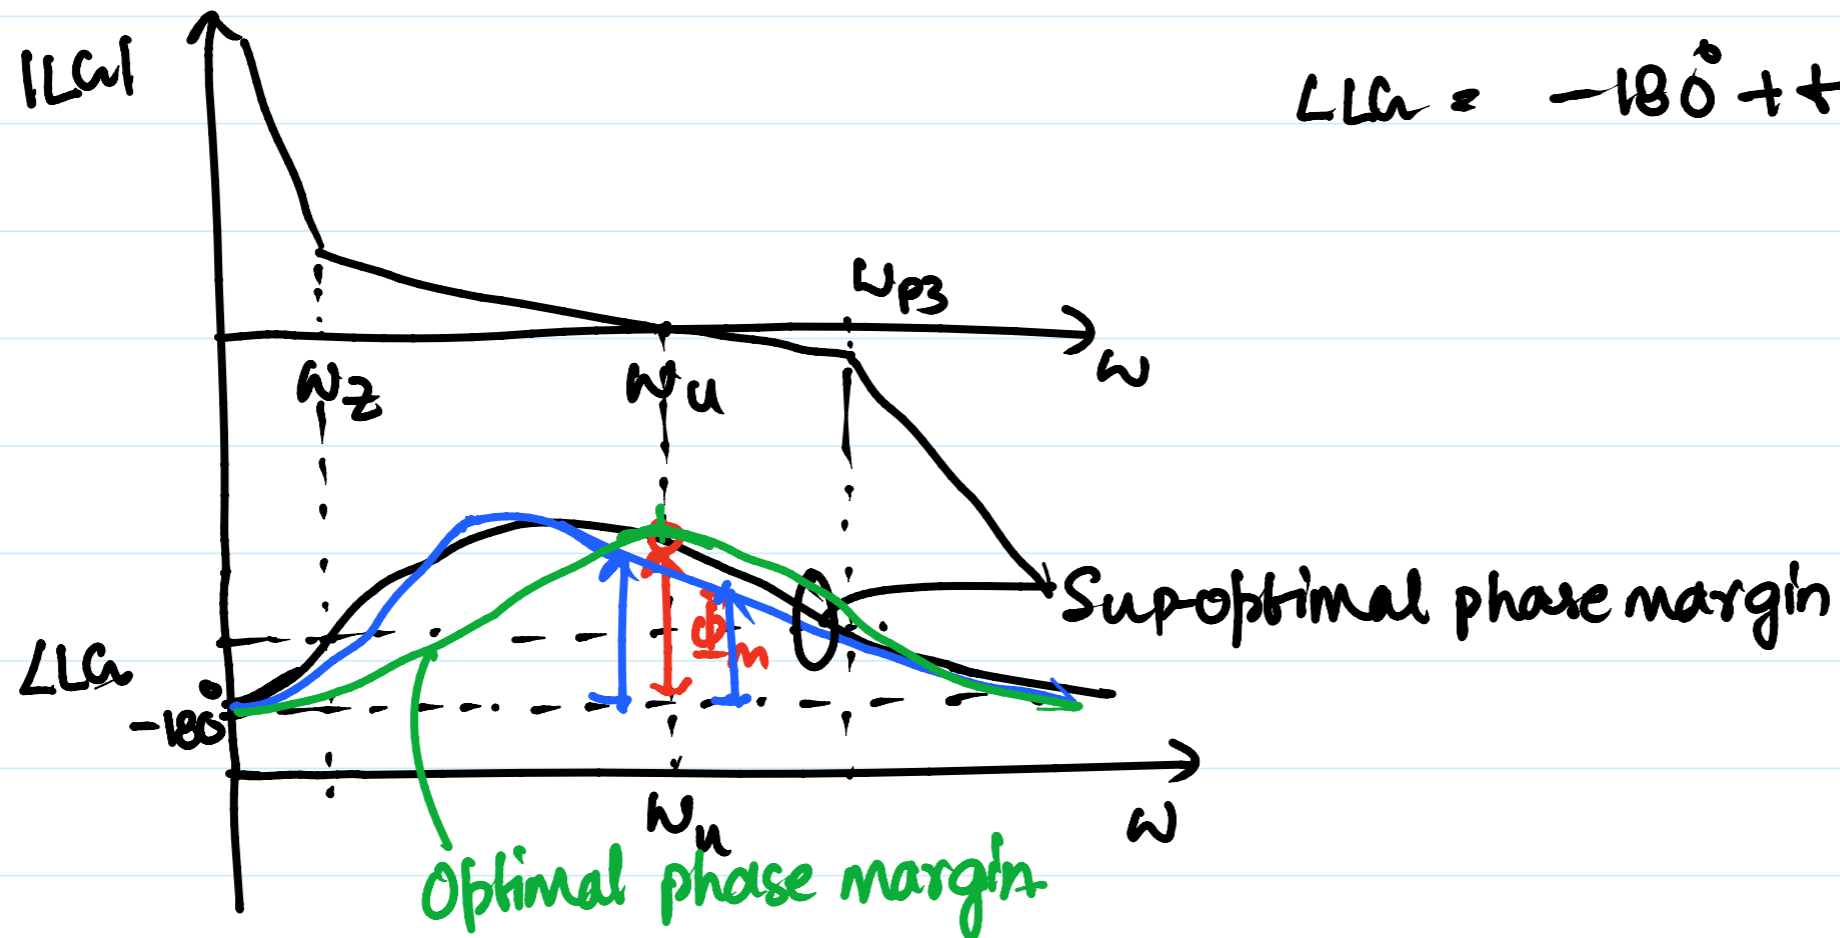 |LG|
∠LG = -180° + t
ω_P3
ω_z
ω_u
ω
Sup-optimal phase margin
Φ_m
∠LG
-180°
ω_u
ω
Optimal phase margin